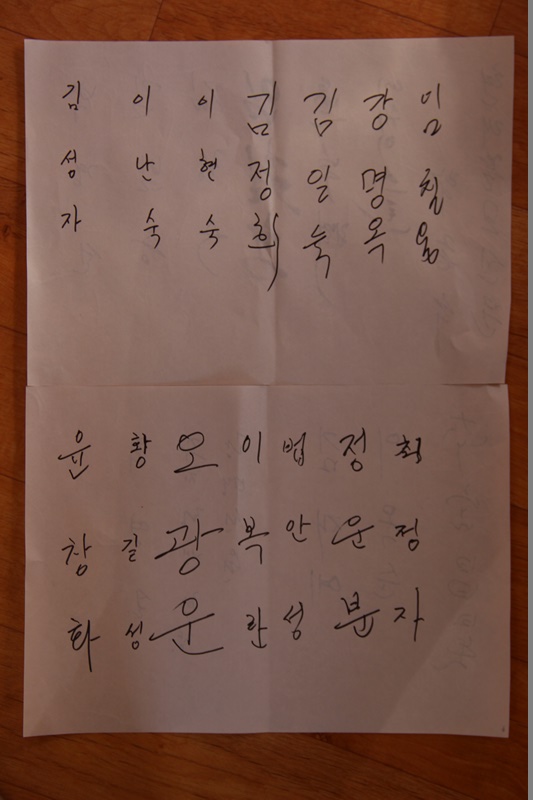 김성자
이난숙
이현숙
김정희
김일숙
강명옥
윤창화
황길성
오광운
이복란
법안성
정운분
최정자